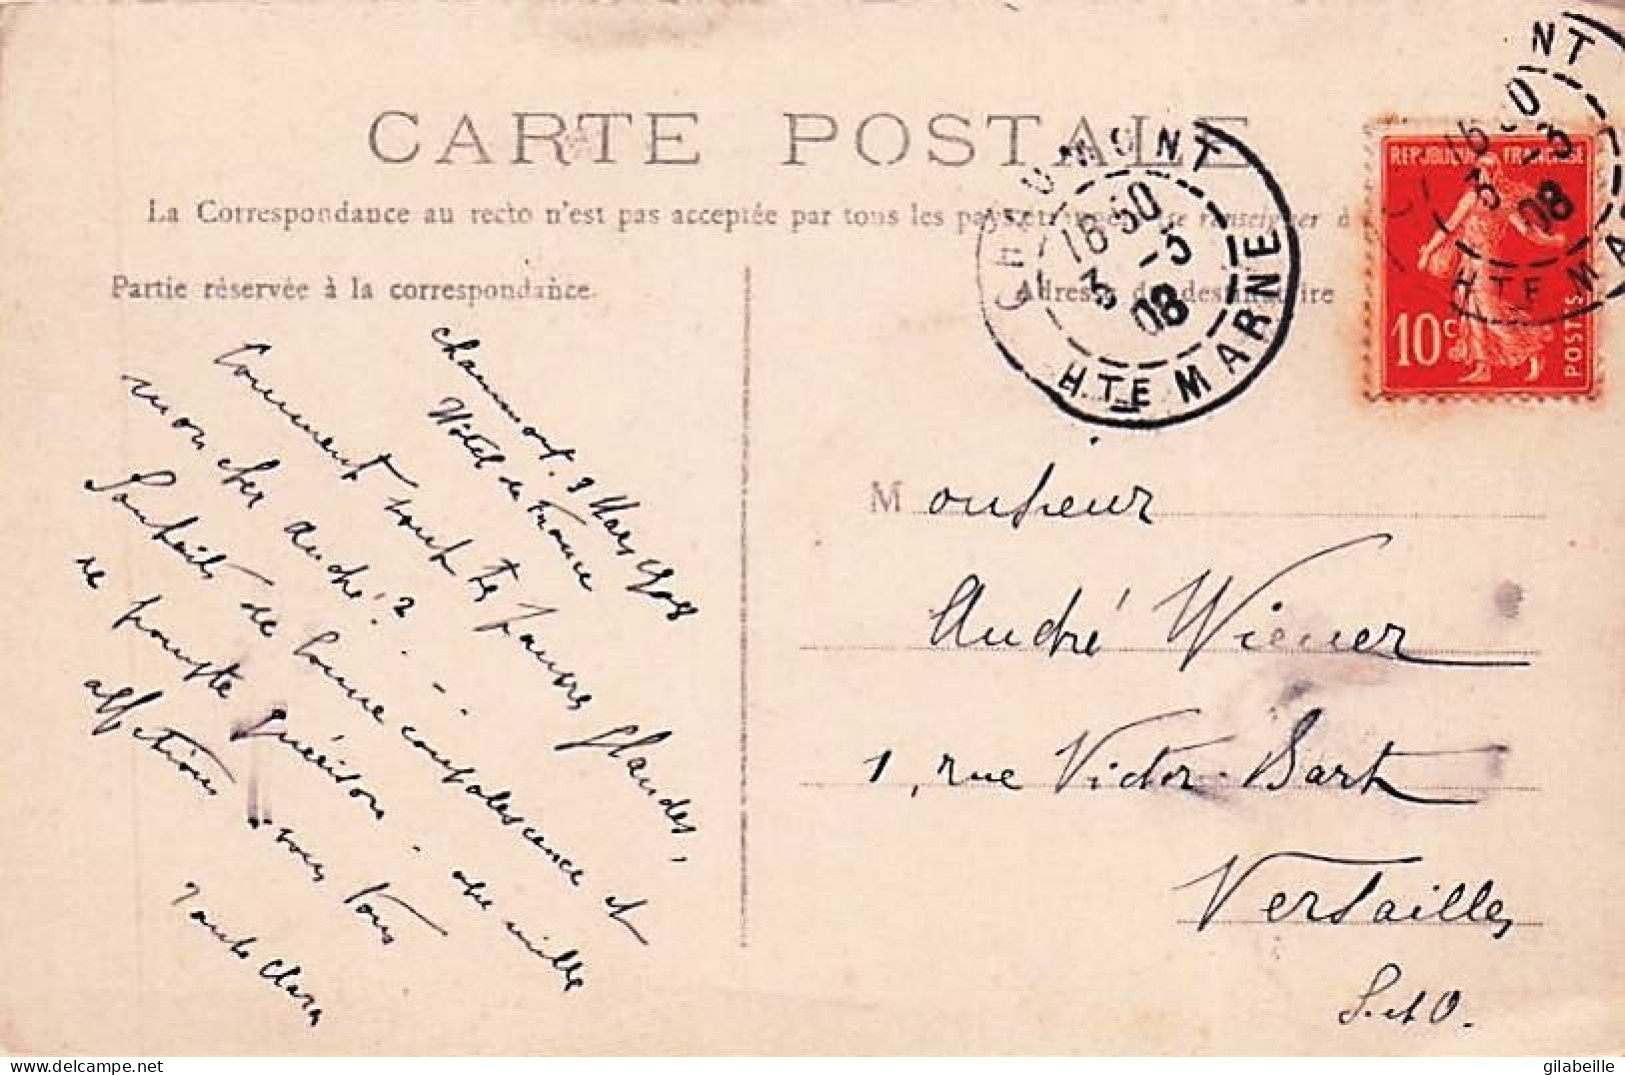 CARTE POSTALE
La Correspondance au recto n'est pas acceptée par tous les pays étrangers se renseigner à
Partie réservée à la correspondance
Adresse du destinataire
CHAUMONT
16 50
3 -3
08
HTE MARNE
CHAUMONT
16 50
3 -3
08
HTE MA
REPUBLIQUE FRANÇAISE
10c
POSTES
chaumont. 3 Mars 1908
Hôtel de France
Comment vont tes pauvres glandes,
mon cher André? - -
Souhaits de bonne convalescence et
de prompte guérison. - mille
affections à vous tous
Tante Clara
Monsieur
André Wiener
1, rue Victor Bart
Versailles
S. et O.
gilabeille